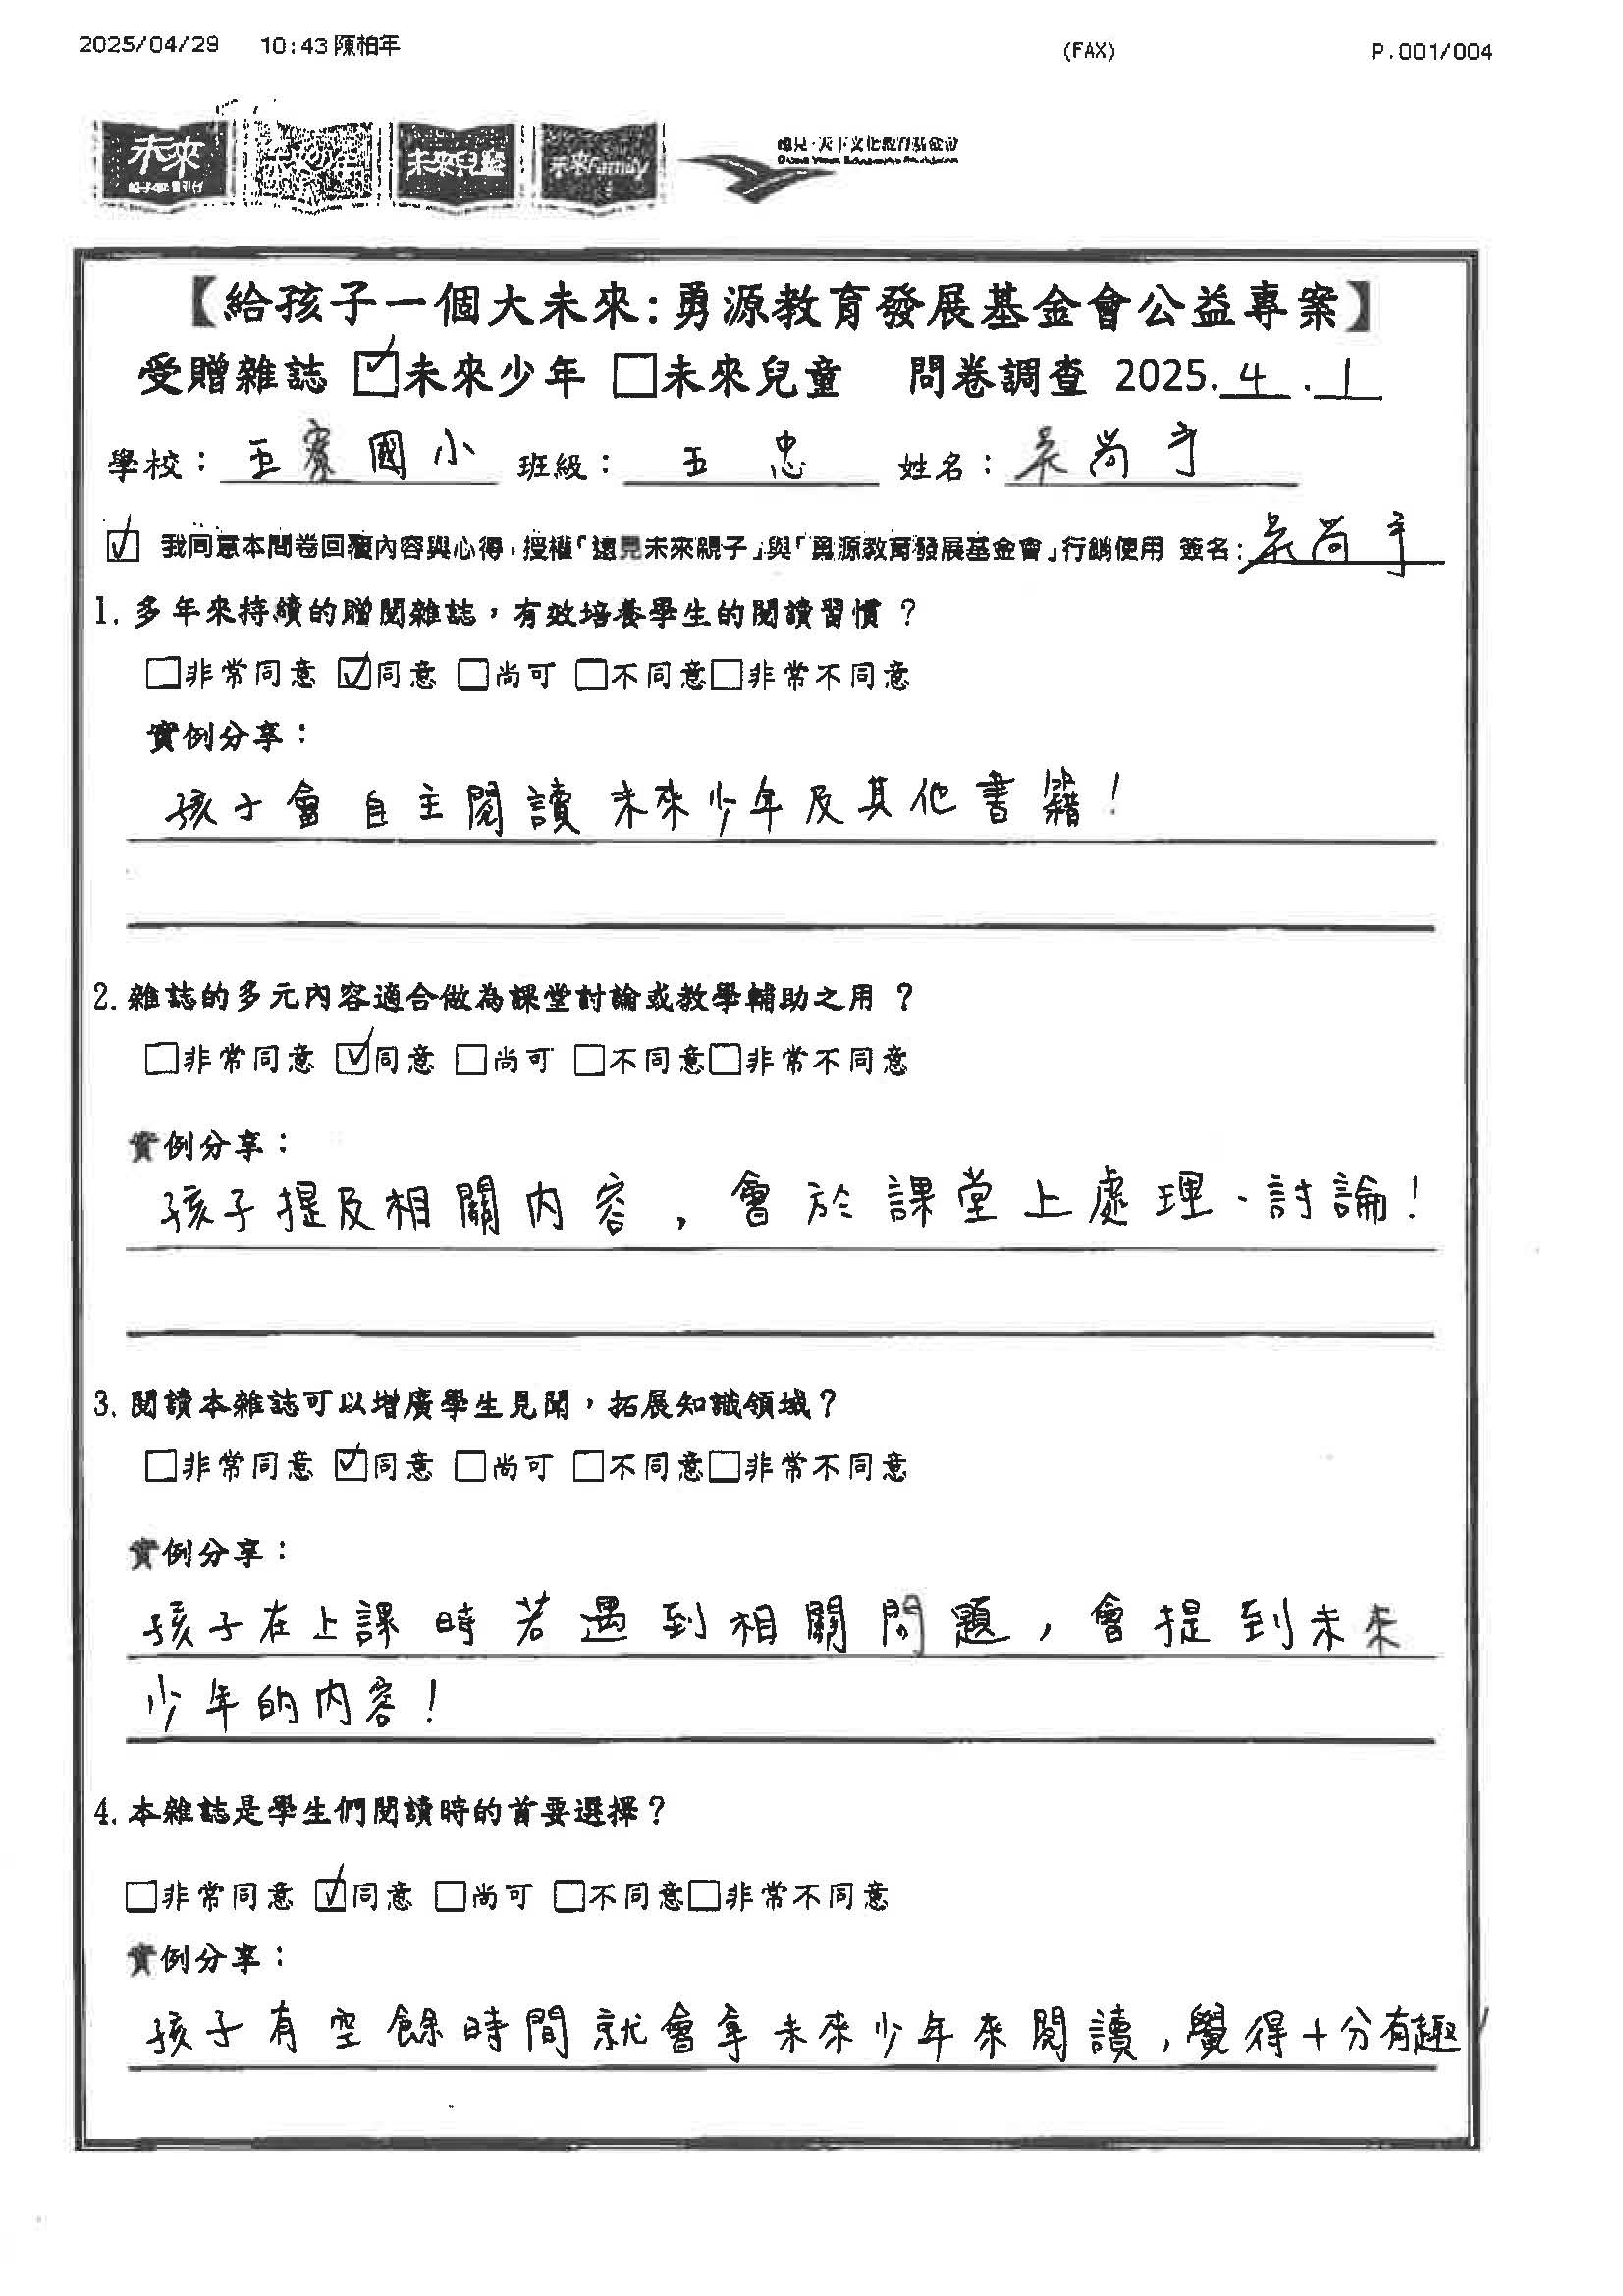 2025/04/29 10:43 陳柏年 (FAX) P.001/004
未來 未來少年 未來兒童 未來Family 遠見·天下文化教育基金會
【給孩子一個大未來:勇源教育發展基金會公益專案】
受贈雜誌 ☑未來少年 □未來兒童 問卷調查 2025. 4 . 1
學校: 國小 班級: 五 忠 姓名: 吳尚
☑ 我同意本問卷回覆內容與心得,授權「遠見未來親子」與「勇源教育發展基金會」行銷使用 簽名: 吳尚
1. 多年來持續的贈閱雜誌,有效培養學生的閱讀習慣?
□非常同意 ☑同意 □尚可 □不同意□非常不同意
實例分享:
孩子會自主閱讀未來少年及其他書籍!
2. 雜誌的多元內容適合做為課堂討論或教學輔助之用?
□非常同意 ☑同意 □尚可 □不同意□非常不同意
實例分享:
孩子提及相關內容,會於課堂上處理、討論!
3. 閱讀本雜誌可以增廣學生見聞,拓展知識領域?
□非常同意 ☑同意 □尚可 □不同意□非常不同意
實例分享:
孩子在上課時若遇到相關問題,會提到未來
少年的內容!
4. 本雜誌是學生們閱讀時的首要選擇?
□非常同意 ☑同意 □尚可 □不同意□非常不同意
實例分享:
孩子有空餘時間就會拿未來少年來閱讀,覺得十分有趣!